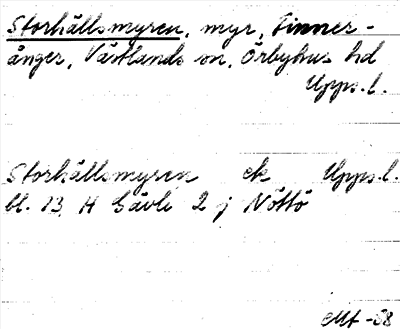 Storhällsmyren, myr, Finner-
ånger, Västlands sn, Örbyhus hd
Upps.l.
Storhällsmyren ek Upps.l.
bl. 13 H Gävle 2 j Nöttö
-58